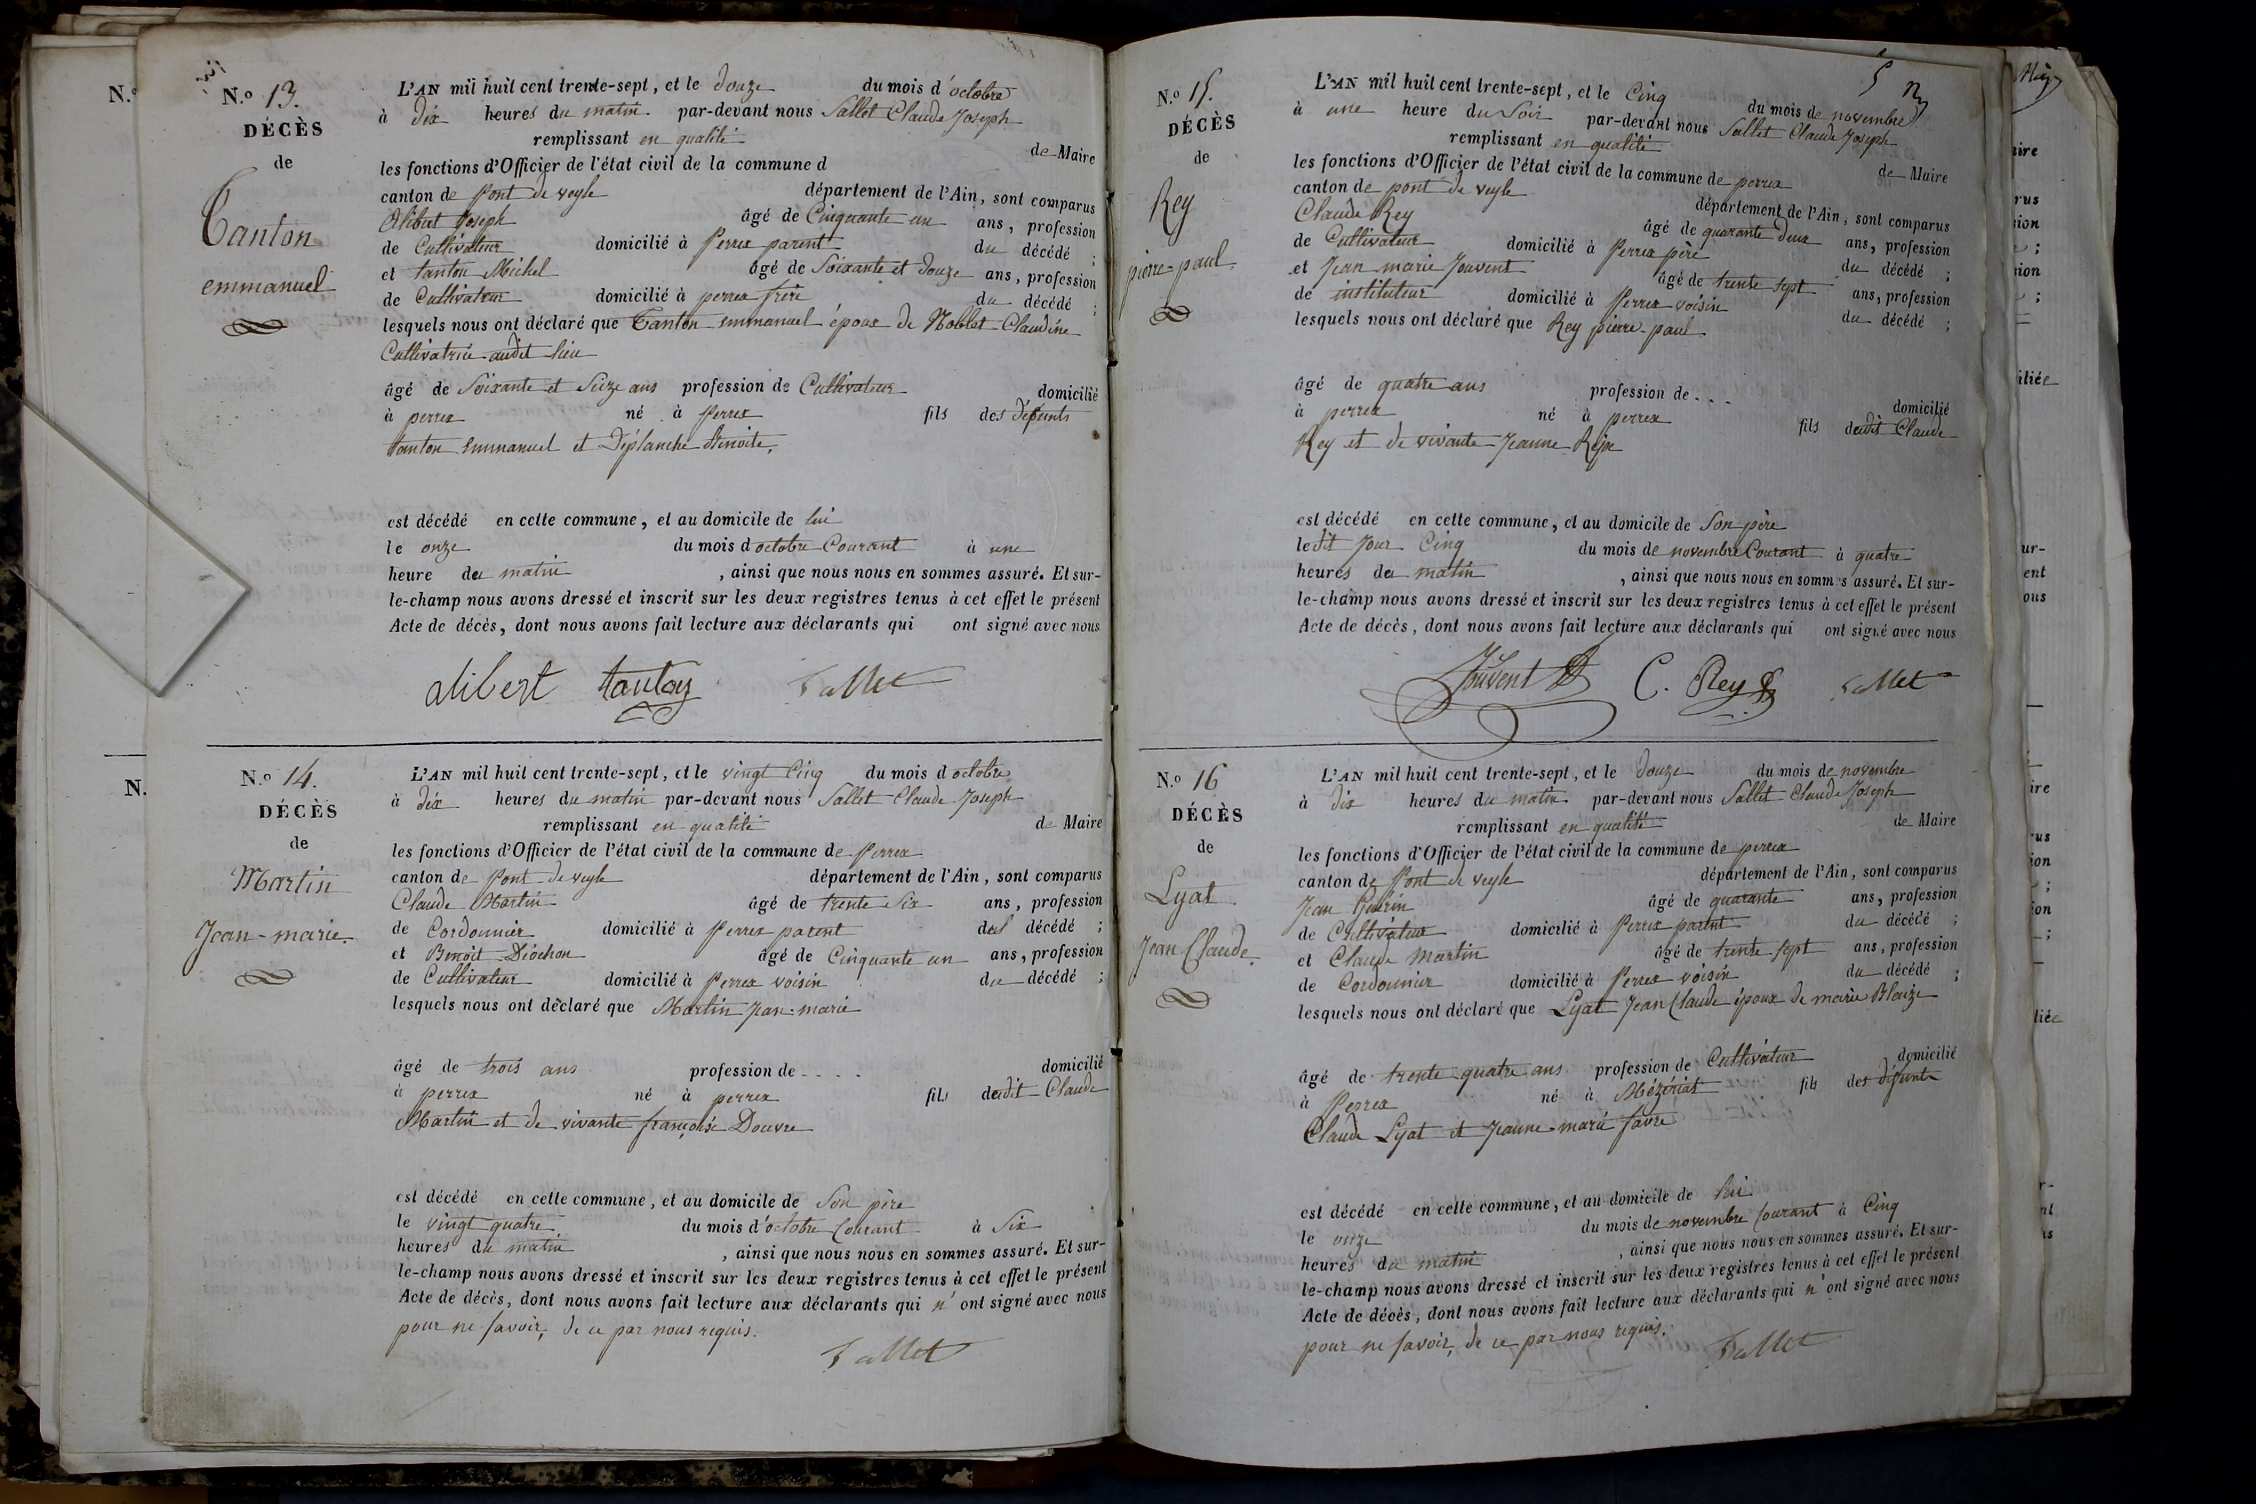 N.º 13.
DÉCÈS
de
Tanton
emmanuel
L'AN mil huit cent trente-sept, et le douze du mois d'octobre
à dix heures du matin par-devant nous Sallet Claude Joseph
remplissant en qualité de Maire
les fonctions d'Officier de l'état civil de la commune d
canton de Pont de veyle département de l'Ain, sont comparus
Alibert Joseph âgé de Cinquante un ans, profession
de Cultivateur domicilié à Perrex parent du décédé ;
et tanton Michel âgé de Soixante et douze ans, profession
de Cultivateur domicilié à perrex frère du décédé ;
lesquels nous ont déclaré que Tanton emmanuel époux de Noblet Claudine
Cultivatrice audit lieu
âgé de Soixante et Seize ans profession de Cultivateur domicilié
à perrex né à Perrex fils des défunts
tanton Emmanuel et Déplanche Benoite,
est décédé en cette commune, et au domicile de lui
le onze du mois d octobre Courant à une
heure du matin , ainsi que nous nous en sommes assuré. Et sur-
le-champ nous avons dressé et inscrit sur les deux registres tenus à cet effet le présent
Acte de décès, dont nous avons fait lecture aux déclarants qui ont signé avec nous
alibert tanton Sallet
N.º 14.
DÉCÈS
de
Martin
Jean-marie.
L'AN mil huit cent trente-sept, et le vingt Cinq du mois d octobre
à dix heures du matin par-devant nous Sallet Claude Joseph
remplissant en qualité de Maire
les fonctions d'Officier de l'état civil de la commune de Perrex
canton de Pont de veyle département de l'Ain, sont comparus
Claude Martin âgé de trente Six ans, profession
de Cordonnier domicilié à Perrex parent du décédé ;
et Benoit Diochon âgé de Cinquante un ans, profession
de Cultivateur domicilié à Perrex voisin du décédé ;
lesquels nous ont déclaré que Martin Jean-marie
âgé de trois ans profession de - - - - domicilié
à perrex né à perrex fils dudit Claude
Martin et de vivante françoise Douvre
est décédé en cette commune, et au domicile de Son père
le vingt quatre du mois d'octobre Courant à Six
heures du matin , ainsi que nous nous en sommes assuré. Et sur-
le-champ nous avons dressé et inscrit sur les deux registres tenus à cet effet le présent
Acte de décès, dont nous avons fait lecture aux déclarants qui n'ont signé avec nous
pour ne savoir, de ce par nous requis.
Sallet
N.º 15.
DÉCÈS
de
Rey
pierre-paul.
L'AN mil huit cent trente-sept, et le Cinq du mois de novembre
à une heure du Soir par-devant nous Sallet Claude Joseph
remplissant en qualité de Maire
les fonctions d'Officier de l'état civil de la commune de perrex
canton de pont de veyle département de l'Ain, sont comparus
Claude Rey âgé de quarante deux ans, profession
de Cultivateur domicilié à Perrex père du décédé ;
et Jean marie Jouvent âgé de trente sept ans, profession
de instituteur domicilié à Perrex voisin du décédé ;
lesquels nous ont déclaré que Rey pierre-paul
âgé de quatre ans profession de - - - domicilié
à perrex né à perrex fils dudit Claude
Rey et de vivante Jeanne
est décédé en cette commune, et au domicile de Son père
ledit Jour Cinq du mois de novembre Courant à quatre
heures du matin , ainsi que nous nous en sommes assuré. Et sur-
le-champ nous avons dressé et inscrit sur les deux registres tenus à cet effet le présent
Acte de décès, dont nous avons fait lecture aux déclarants qui ont signé avec nous
Jouvent C. Rey Sallet
N.º 16
DÉCÈS
de
Lyat
Jean Claude.
L'AN mil huit cent trente-sept, et le douze du mois de novembre
à dix heures du matin par-devant nous Sallet Claude Joseph
remplissant en qualité de Maire
les fonctions d'Officier de l'état civil de la commune de perrex
canton de Pont de veyle département de l'Ain, sont comparus
Jean Guérin âgé de quarante ans, profession
de Cultivateur domicilié à Perrex parent du décédé ;
et Claude Martin âgé de trente sept ans, profession
de Cordonnier domicilié à Perrex voisin du décédé ;
lesquels nous ont déclaré que Lyat Jean Claude époux de marie Blaize
âgé de trente quatre ans profession de Cultivateur domicilié
à Perrex né à Mézériat fils des défunts
Claude Lyat et Jeanne-marie favre
est décédé en cette commune, et au domicile de lui
le onze du mois de novembre Courant à Cinq
heures du matin , ainsi que nous nous en sommes assuré. Et sur-
le-champ nous avons dressé et inscrit sur les deux registres tenus à cet effet le présent
Acte de décès, dont nous avons fait lecture aux déclarants qui n'ont signé avec nous
pour ne savoir, de ce par nous requis.
Sallet